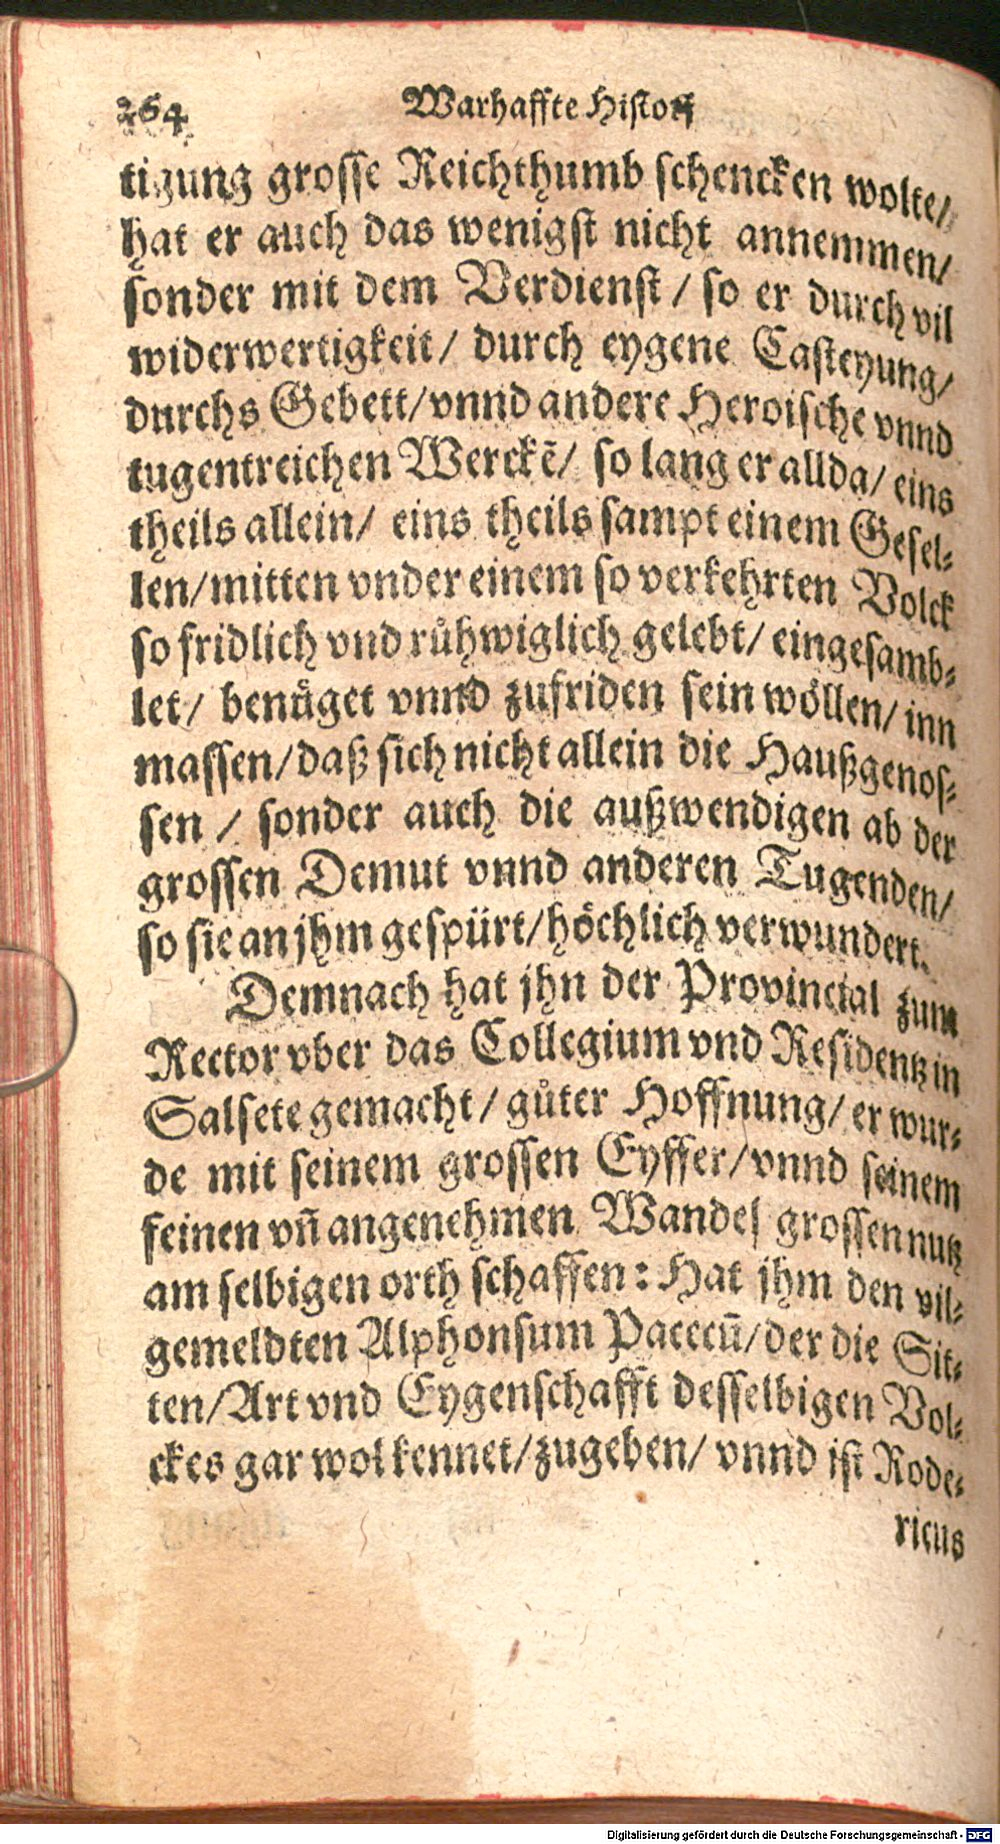 264 Warhaffte Histori
tigung grosse Reichthumb schencken wolte/
hat er auch das wenigst nicht annemmen/
sonder mit dem Verdienst / so er durch vil
widerwertigkeit/ durch eygene Casteyung/
durchs Gebett/vnnd andere Heroische vnnd
tugentreichen Werckē/ so lang er allda/ eins
theils allein/ eins theils sampt einem Gesel-
len/mitten vnder einem so verkehrten Volck
so fridlich vnd růhwiglich gelebt/ eingesamb-
let/ benůget vnnd zufriden sein wöllen/ inn
massen/daß sich nicht allein die Haußgenos-
sen / sonder auch die außwendigen ab der
grossen Demut vnnd anderen Tugenden/
so sie an jhm gespürt/höchlich verwundert.
Demnach hat jhn der Provincial zum
Rector vber das Collegium vnd Residentz in
Salsete gemacht/ gůter Hoffnung/ er wur-
de mit seinem grossen Eyffer/vnnd seinem
feinen vñ angenehmen Wandel grossen nutz
am selbigen orth schaffen: Hat jhm den vil-
gemeldten Alphonsum Pacecū/der die Sit-
ten/Art vnd Eygenschafft desselbigen Vol-
ckes gar wol kennet/zugeben/ vnnd ist Rode-
ricus
Digitalisierung gefördert durch die Deutsche Forschungsgemeinschaft - DFG